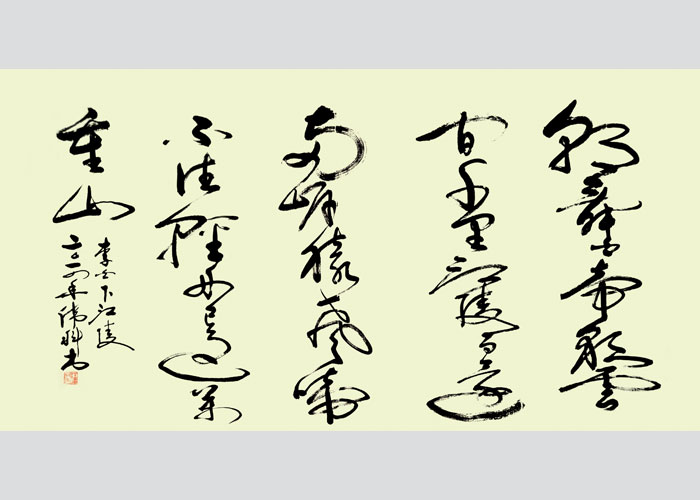 朝辭白帝彩雲
间千里江陵一日還
两岸猿聲啼
不住輕舟已過萬
重山
李白下江陵
二〇一四年